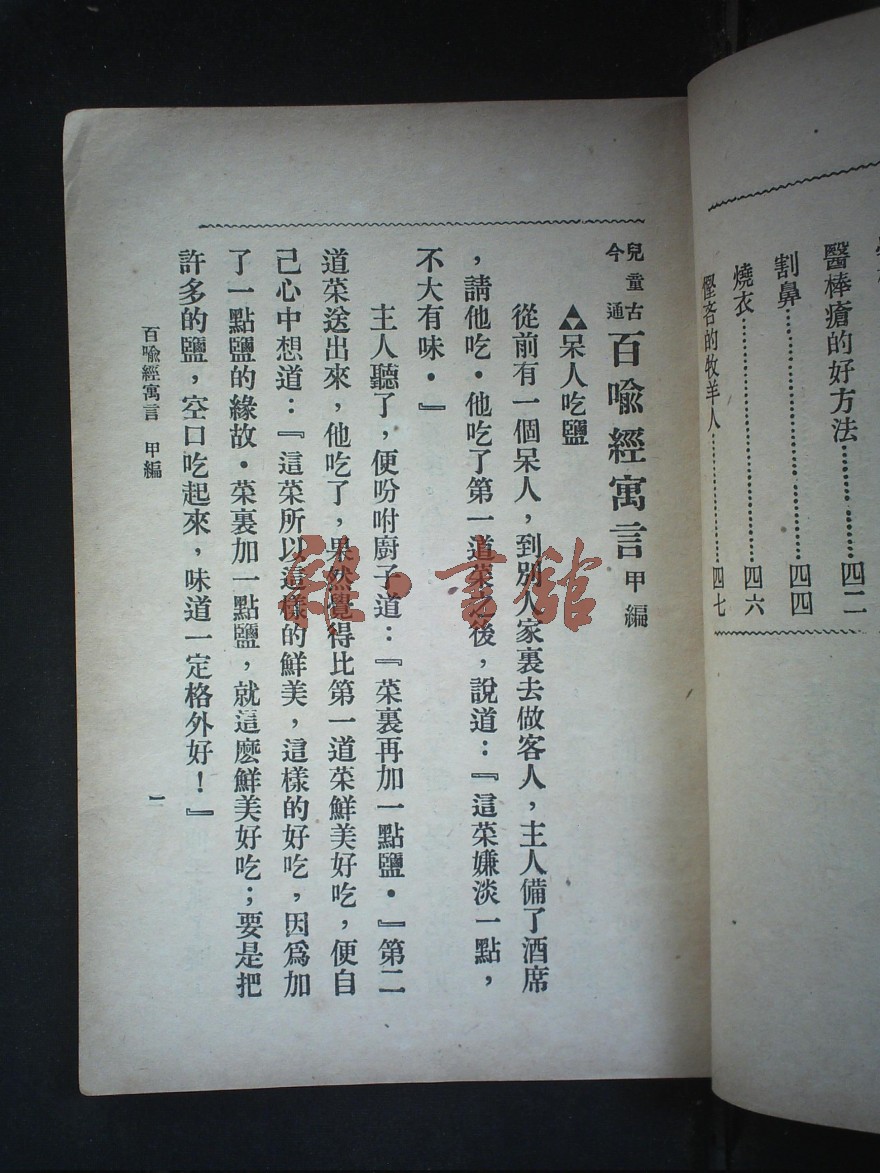 醫棒瘡的好方法……………四二
割鼻……………………四四
燒衣……………………四六
慳吝的牧羊人……………四七
兒童古今通 百喩經寓言 甲編
呆人吃鹽
從前有一個呆人，到別人家裏去做客人，主人備了酒席
，請他吃．他吃了第一道菜之後，說道：『這菜嫌淡一點，
不大有味．』
主人聽了，便吩咐廚子道：『菜裏再加一點鹽．』第二
道菜送出來，他吃了，果然覺得比第一道菜鮮美好吃，便自
己心中想道：『這菜所以這樣的鮮美，這樣的好吃，因爲加
了一點鹽的緣故．菜裏加一點鹽，就這麽鮮美好吃；要是把
許多的鹽，空口吃起來，味道一定格外好！』
百喩經寓言 甲編
一